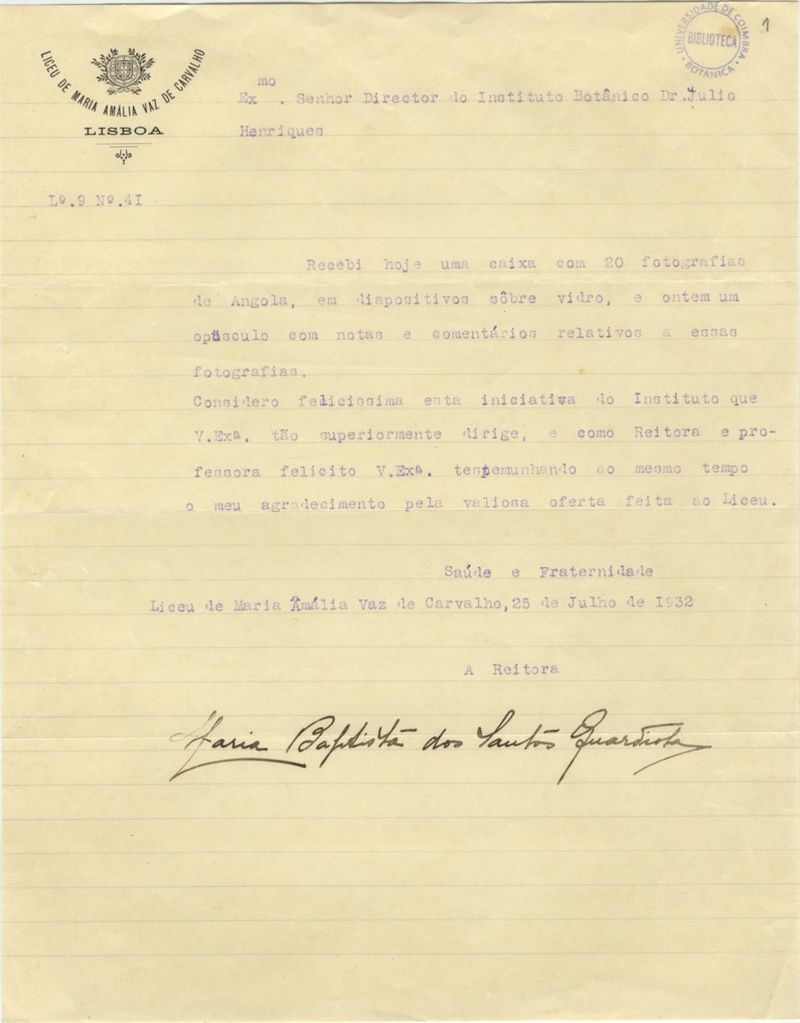 LICEU DE MARIA AMÁLIA VAZ DE CARVALHO
LISBOA
UNIVERSIDADE DE COIMBRA
BIBLIOTECA
BOTANICA
1
Exmo. Senhor Director do Instituto Botânico Dr. Julio
Henriques
Lº.9 Nº.4I
Recebi hoje uma caixa com 20 fotografias
de Angola, em diapositivos sôbre vidro, e ontem um
opúsculo com notas e comentários relativos a essas
fotografias.
Considero felicissima esta iniciativa do Instituto que
V.Exª. tão superiormente dirige, e como Reitora e pro-
fessora felicito V.Exª. testemunhando ao mesmo tempo
o meu agradecimento pela valiosa oferta feita ao Liceu.
Saúde e Fraternidade
Liceu de Maria Amália Vaz de Carvalho, 25 de Julho de I932
A Reitora
Maria Baptista dos Santos Guardiola